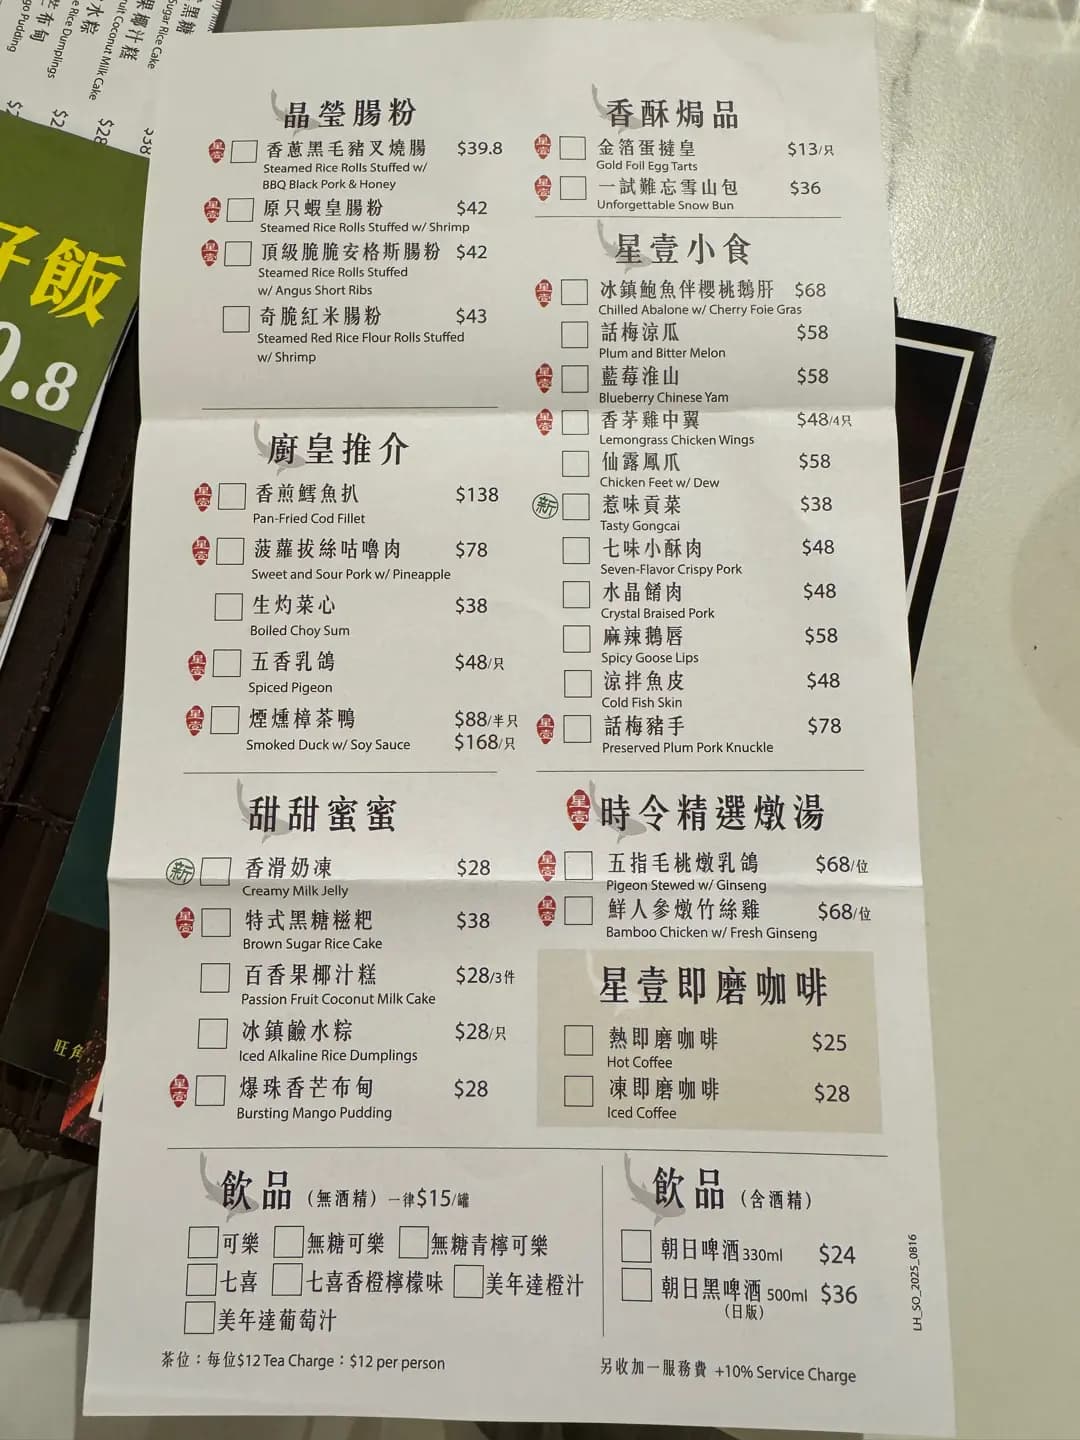 晶瑩腸粉
星壹 香蔥黑毛豬叉燒腸 $39.8
Steamed Rice Rolls Stuffed w/
BBQ Black Pork & Honey
星壹 原只蝦皇腸粉 $42
Steamed Rice Rolls Stuffed w/ Shrimp
星壹 頂級脆脆安格斯腸粉 $42
Steamed Rice Rolls Stuffed
w/ Angus Short Ribs
奇脆紅米腸粉 $43
Steamed Red Rice Flour Rolls Stuffed
w/ Shrimp
廚皇推介
星壹 香煎鱈魚扒 $138
Pan-Fried Cod Fillet
星壹 菠蘿拔絲咕嚕肉 $78
Sweet and Sour Pork w/ Pineapple
生灼菜心 $38
Bolled Choy Sum
星壹 五香乳鴿 $48/只
Spiced Pigeon
星壹 煙燻樟茶鴨 $88/半只
Smoked Duck w/ Soy Sauce $168/只
甜甜蜜蜜
新 香滑奶凍 $28
Creamy Milk Jelly
星壹 特式黑糖糍粑 $38
Brown Sugar Rice Cake
百香果椰汁糕 $28/3件
Passion Fruit Coconut Milk Cake
冰鎮鹼水粽 $28/只
Iced Alkaline Rice Dumplings
星壹 爆珠香芒布甸 $28
Bursting Mango Pudding
香酥焗品
星壹 金箔蛋撻皇 $13/只
Gold Foil Egg Tarts
星壹 一試難忘雪山包 $36
Unforgettable Snow Bun
星壹小食
星壹 冰鎮鮑魚伴櫻桃鵝肝 $68
Chilled Abalone w/ Cherry Foie Gras
話梅涼瓜 $58
Plum and Bitter Melon
星壹 藍莓淮山 $58
Blueberry Chinese Yam
星壹 香茅雞中翼 $48/4只
Lemongrass Chicken Wings
仙露鳳爪 $58
Chicken Feet w/ Dew
新 惹味貢菜 $38
Tasty Gongcai
七味小酥肉 $48
Seven-Flavor Crispy Pork
水晶餚肉 $48
Crystal Braised Pork
麻辣鵝唇 $58
Spicy Goose Lips
涼拌魚皮 $48
Cold Fish Skin
星壹 話梅豬手 $78
Preserved Plum Pork Knuckle
星壹 時令精選燉湯
星壹 五指毛桃燉乳鴿 $68/位
Pigeon Stewed w/ Ginseng
星壹 鮮人參燉竹絲雞 $68/位
Bamboo Chicken w/ Fresh Ginseng
星壹即磨咖啡
熱即磨咖啡 $25
Hot Coffee
凍即磨咖啡 $28
Iced Coffee
飲品（無酒精）一律$15/罐
可樂 無糖可樂 無糖青檸可樂
七喜 七喜香橙檸檬味 美年達橙汁
美年達葡萄汁
茶位：每位$12 Tea Charge：$12 per person
飲品（含酒精）
朝日啤酒 330ml $24
朝日黑啤酒 500ml $36
(日版)
另收加一服務費 +10% Service Charge
LH_SO_2025_0816
黑糖
Sugar Rice Cake
果椰汁糕
ruit Coconut Milk Cake
水粽
e Rice Dumplings
芒布甸
go Pudding
$38
$28
$2
飯
.8
旺角